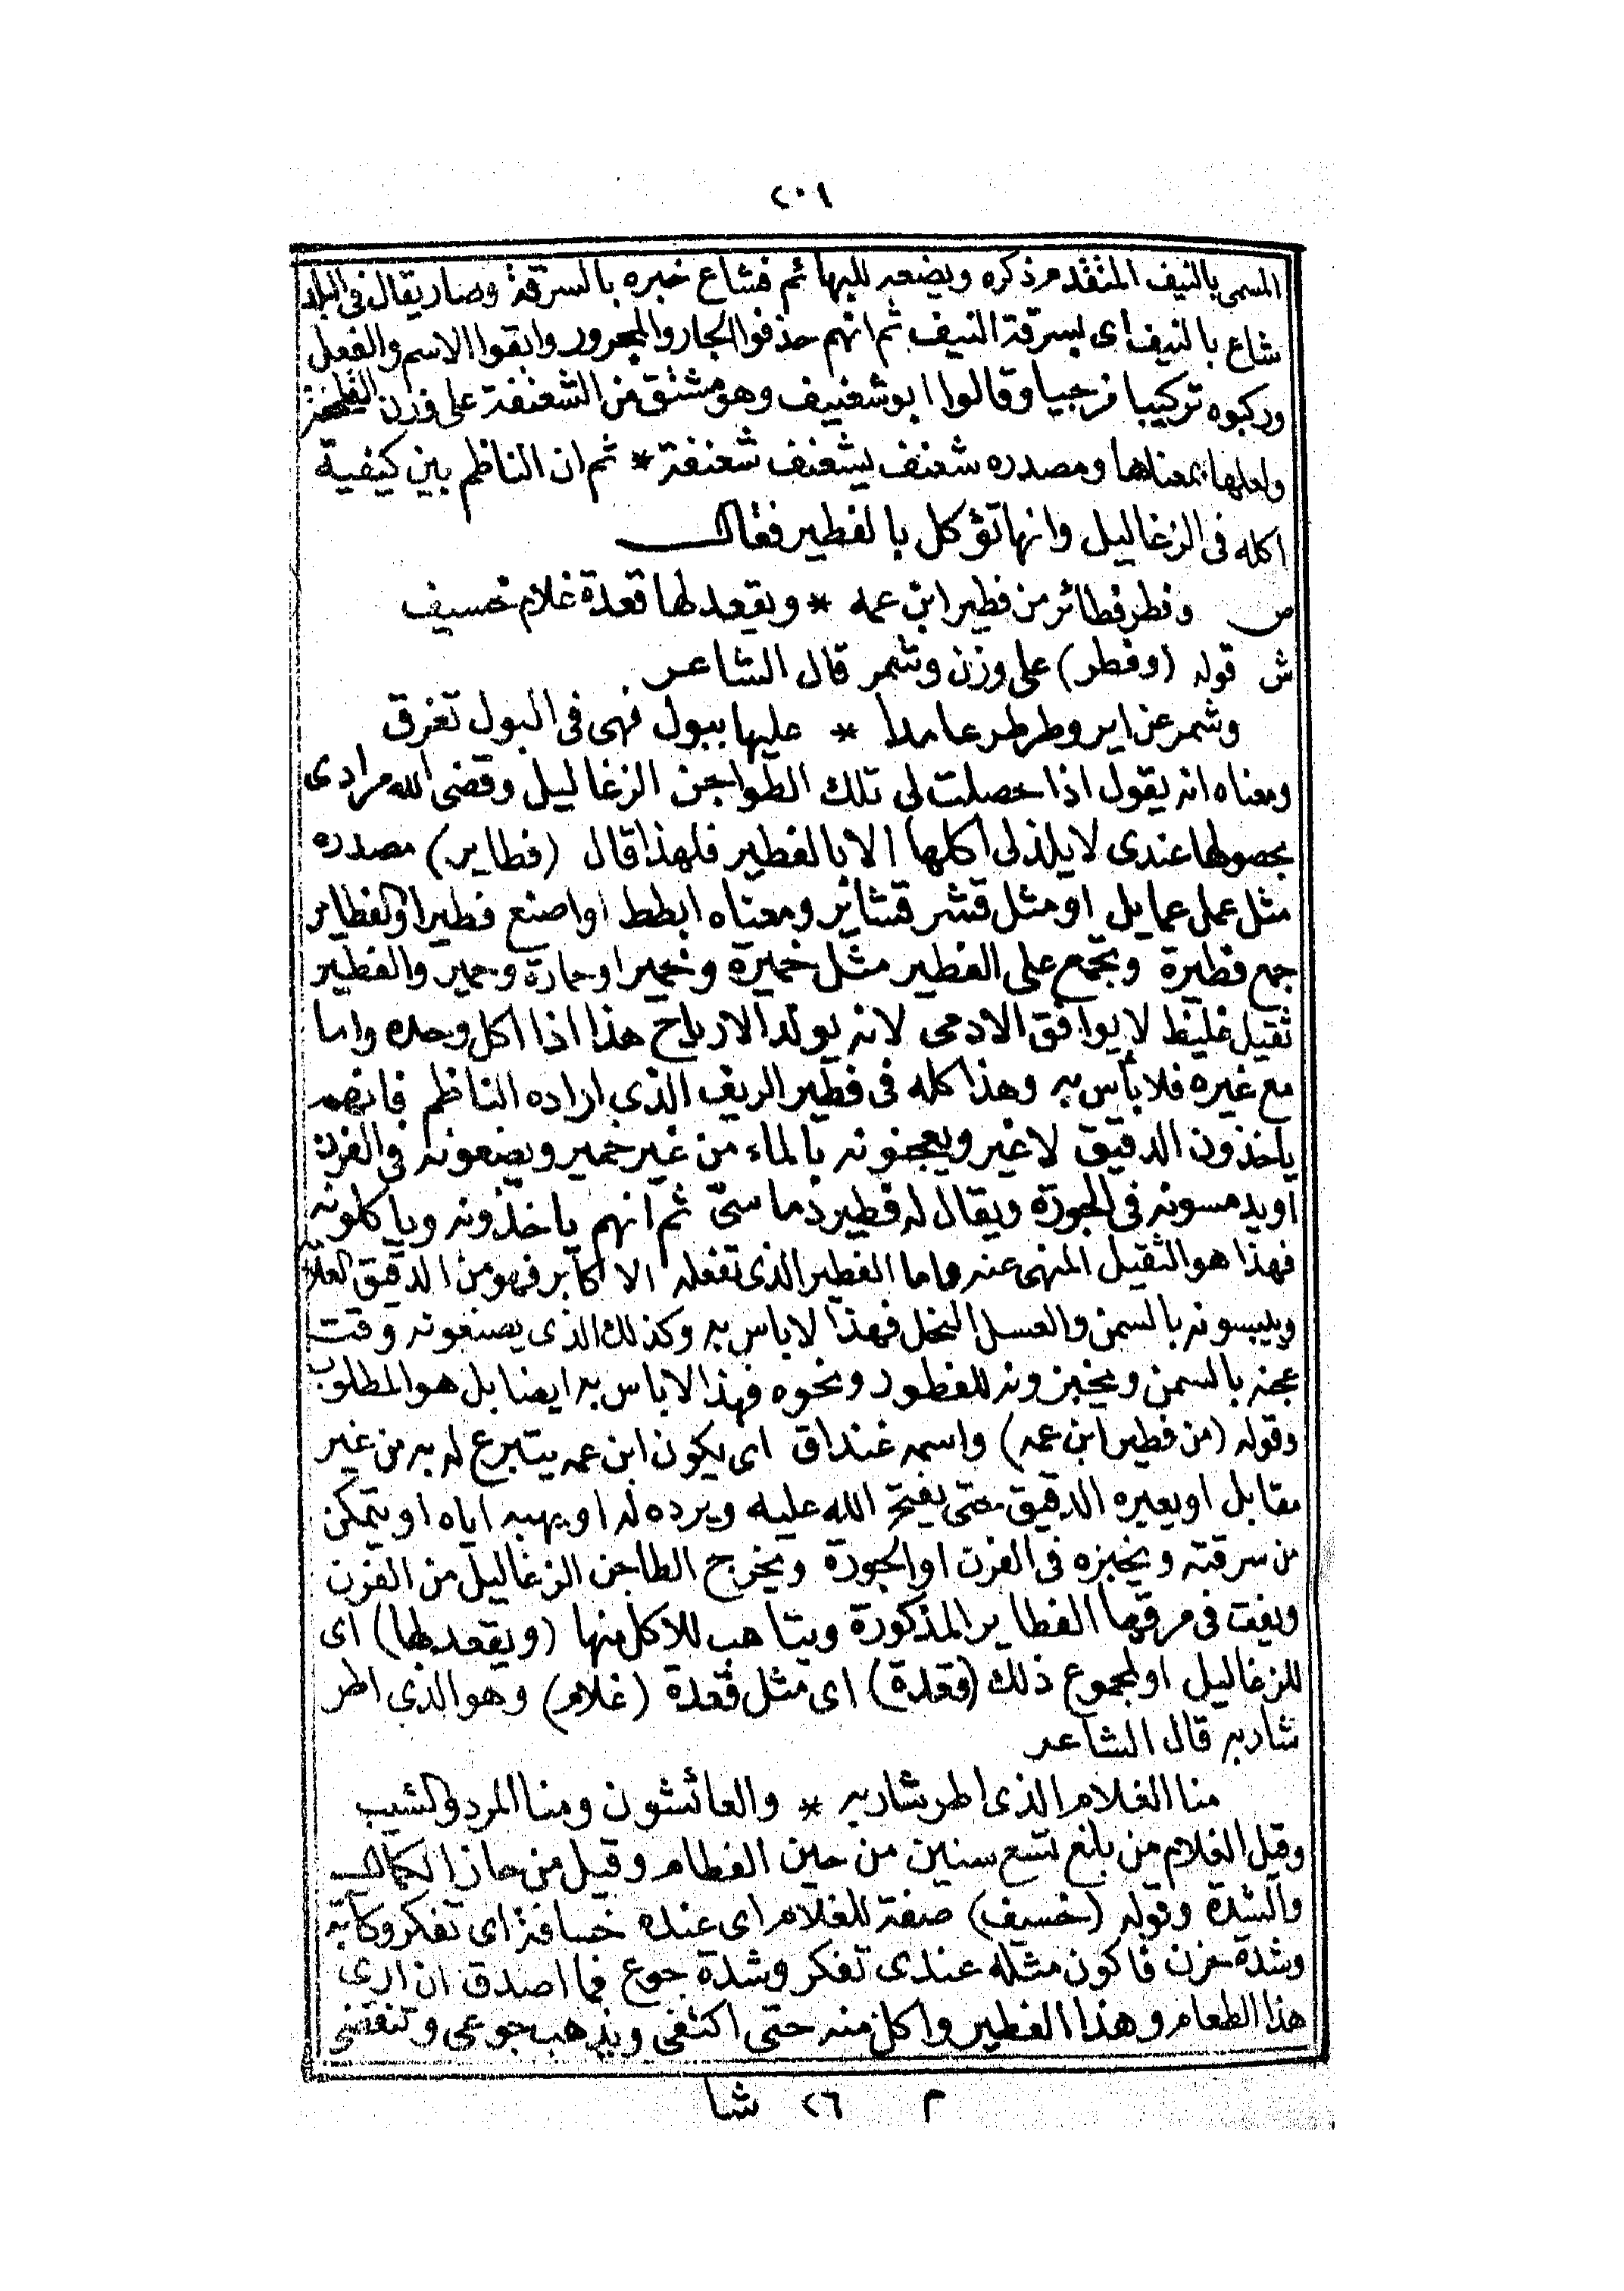 ٢٠١
المسمى بالنيف المتقدم ذكره ويضعه للبهائم فشاع خبره بالسرقة وصار يقال فى البلد
شاع بالنيف أى بسرقة النيف ثم انهم حذفوا الجار والمجرور وابقوا الاسم والفعل
وركبوه تركيبا مزجيا وقالوا ابو شغنيف وهو مشتق من الشغنفة على وزن
ولعلها بمعناها ومصدره شغنف يشغنف شغنفة * ثم ان الناظم بين كيفية
اكله فى الزغاليل وانها تؤكل بالفطير فقال
ص وفطر فطائر من فطير ابن عمه * ويقعد لها قعدة غلام خسيف
ش قوله (وفطر) على وزن وشمر قال الشاعر
وشمر عن اير وطرطر عامدا * عليها ببول فهى فى البول تغرق
ومعناه انه يقول اذا حصلت لى تلك الطواجن الزغاليل وقضى الله مرادى
بحصولها عندى لا يلذ لى اكلها الا بالفطير فلهذا قال (فطاير) مصدره
مثل عمل عمايل او مثل قشر قشائر ومعناه ابطط او اصنع فطيرا والفطاير
جمع فطيرة وتجمع على الفطير مثل خميرة وخمير او حمارة وحمير والفطير
ثقيل غليظ لا يوافق الادمى لانه يولد الارياح هذا اذا اكل وحده واما
مع غيره فلا بأس به وهذا كله فى فطير الريف الذى اراده الناظم فانهم
ياخذون الدقيق لا غير ويعجنونه بالماء من غير خمير ويضعونه فى الفرن
او يدمسونه فى الجورة ويقال له فطير دماسى ثم انهم ياخذونه وياكلونه
فهذا هو الثقيل المنهى عنه واما الفطير الذى تفعله الاكابر فهو من الدقيق العلامة
ويبسونه بالسمن والعسل النحل فهذا لا باس به وكذلك الذى يصنعونه وقت
عجنه بالسمن ويخبزونه للفطور ونحوه فهذا لا باس به ايضا بل هو المطلوب
وقوله (من فطير ابن عمه) واسمه غنداق اى يكون ابن عمه يتبرع له به من غير
مقابل او يعيره الدقيق حتى يفتح الله عليه ويرده له او يهبه اياه او يتمكن
من سرقته ويخبزه فى الفرن او الجورة ويخرج الطاجن الزغاليل من الفرن
ويفت فى مرقها الفطاير المذكورة ويتاهب للاكل منها (ويقعد لها) اى
للزغاليل او لمجموع ذلك (قعدة) اى مثل قعدة (غلام) وهو الذى اطر
شاربه قال الشاعر
منا الغلام الذى اطر شاربه * والعائشون ومنا المرد والشيب
وقيل الغلام من بلغ تسع سنين من حين الفطام وقيل من حاز الكمال
والشدة وقوله (خسيف) صفة للغلام اى عنده خسافة اى تفكر وكآبة
وشدة حزن فاكون مثله عندى تفكر وشدة جوع فما اصدق ان ارى
هذا الطعام وهذا الفطير واكل منه حتى اكتفى ويذهب جوعى وتنقضى
م ٢٦ شا